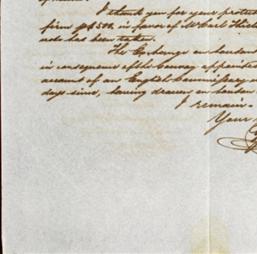 I thank you for your protec
firm $500 in favor of M Carl Thiel
has been taken.
The Exchange on London
in consequence of the Convoy appointed
account of an English Commissary
days since, having drawn on London
I remain
Your